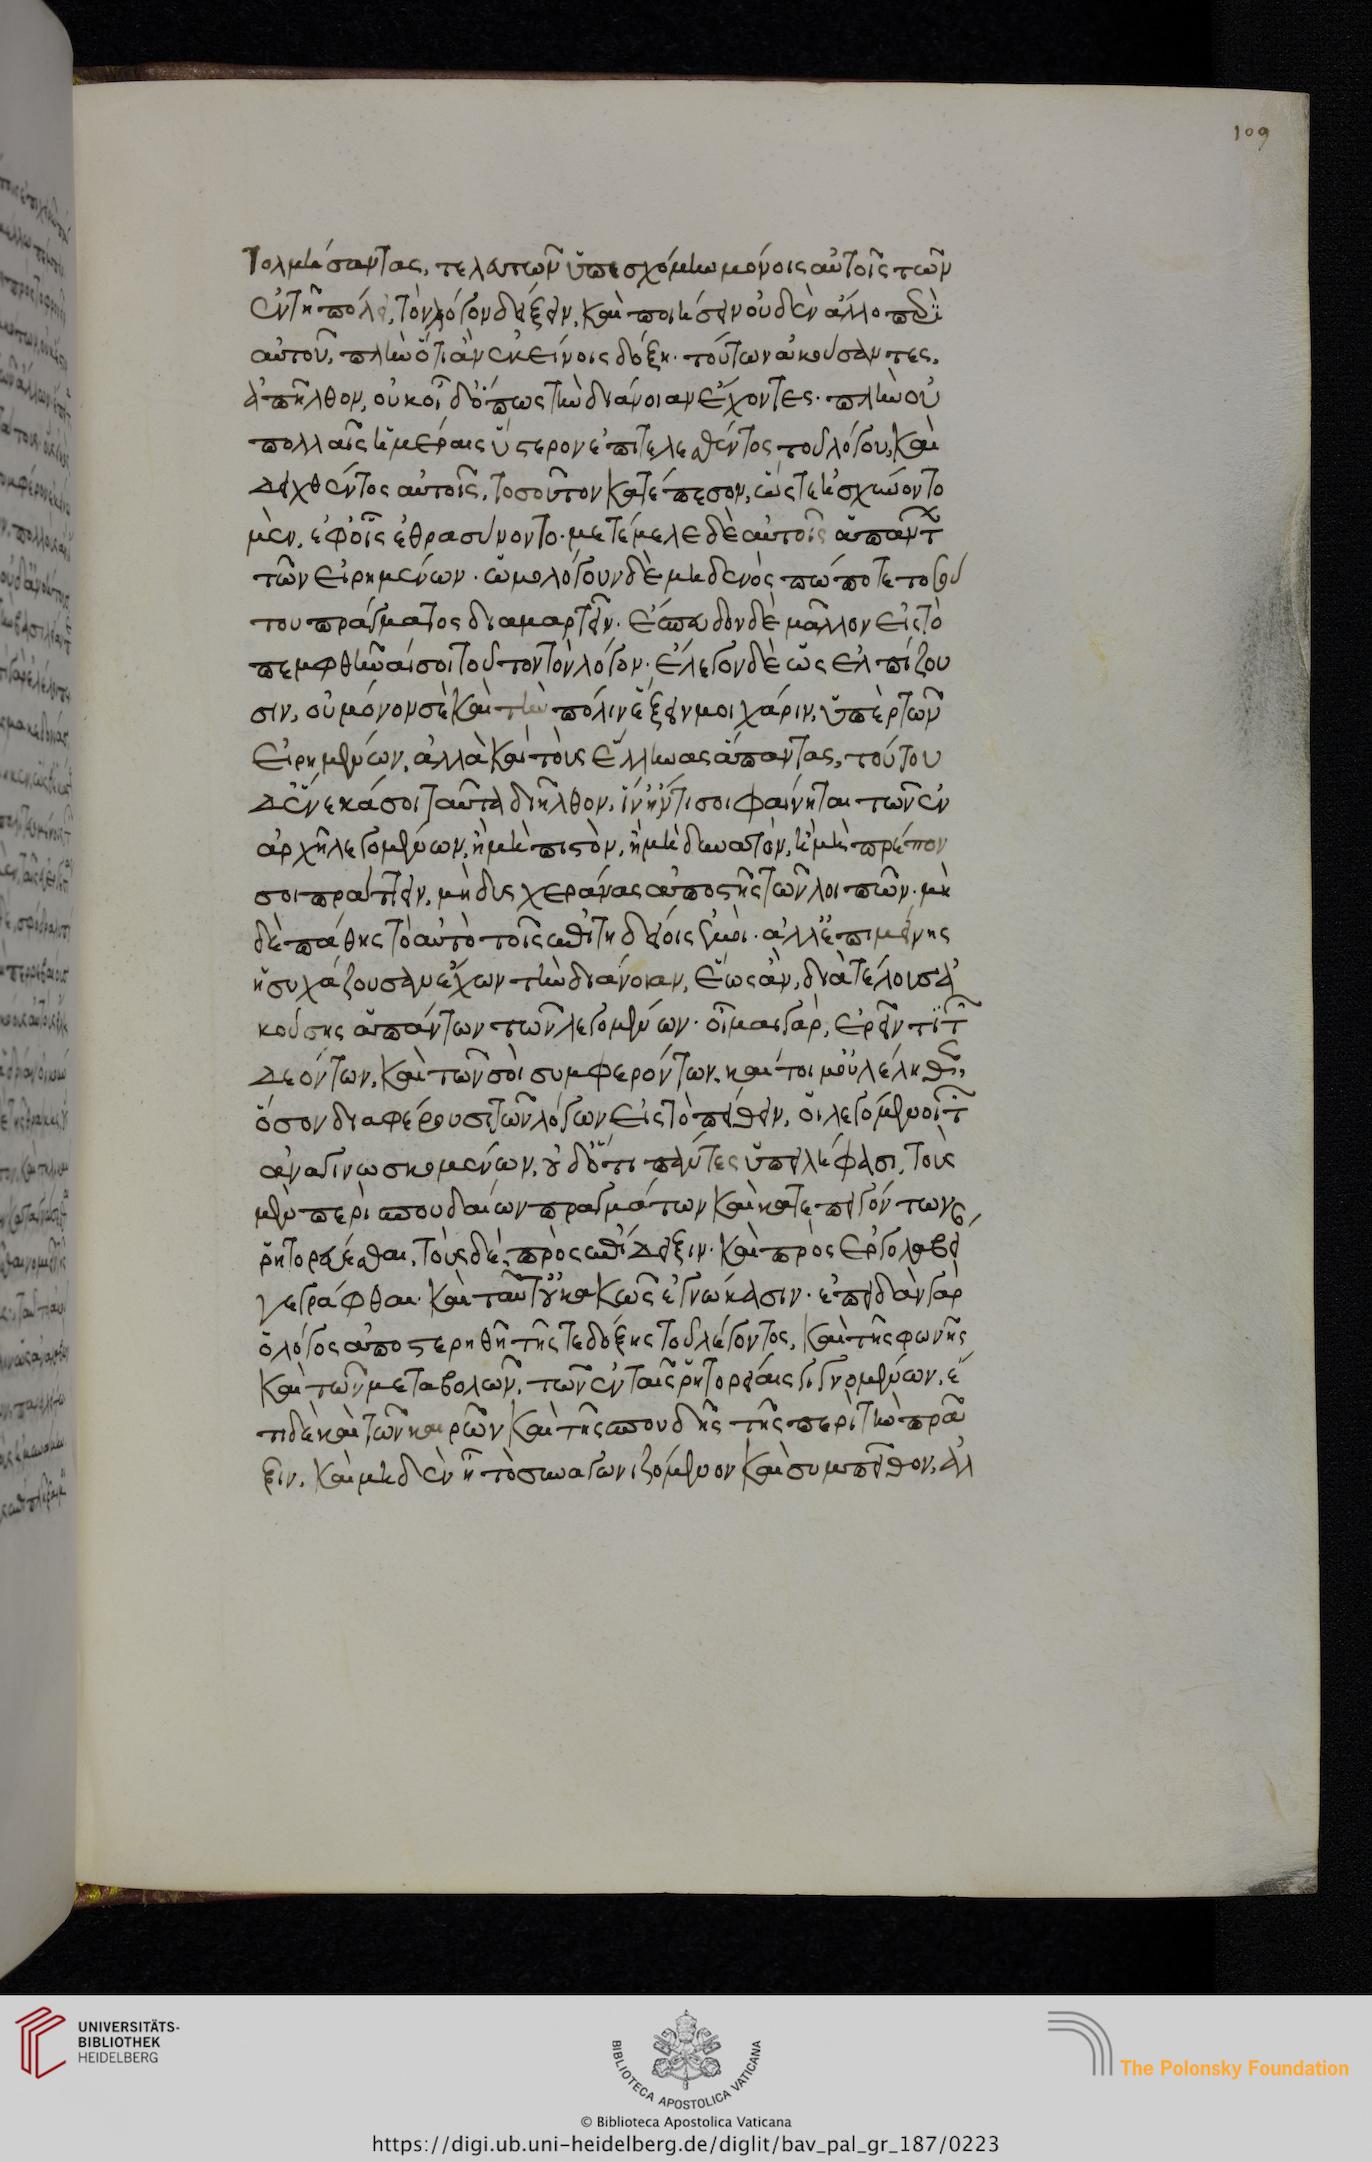 109
τολμήσαντας, τελευτῶν ὑπεσχόμην μόνοις αὐτοῖς τῶν
ἐν τῇ πόλει, τὸν λόγον δείξειν, καὶ ποιήσειν οὐδὲν ἄλλο περὶ
αὐτοῦ, πλὴν ὅτι ἂν ἐκείνοις δόξη· τούτων ἀκούσαντες,
ἀπῆλθον, οὐκ οἶδ' ὅπως τὴν διάνοιαν ἔχοντες· πλὴν οὐ
πολλαῖς ἡμέραις ὕστερον ἐπιτελεσθέντος τοῦ λόγου, καὶ
δειχθέντος αὐτοῖς, τοσοῦτον κατέπεσον, ὥστε ἠσχύνοντο
μὲν, ἐφ' οἷς ἐθρασύνοντο· μετέμελε δὲ αὐτοῖς ἁπάντων
τῶν εἰρημένων· ὡμολόγουν δὲ μηδενὸς πώποτε τοσού
του πράγματος διαμαρτεῖν· ἔσπευδον δὲ μᾶλλον εἰς τὸ
πεμφθῆναί σοι τοῦτον τὸν λόγον· ἔλεγον δὲ ὡς ἐλπίζου
σιν, οὐ μόνον σὲ καὶ τὴν πόλιν ἕξειν μοι χάριν, ὑπὲρ τῶν
εἰρημένων, ἀλλὰ καὶ τοὺς ἕλληνας ἅπαντας, τούτου
δ' ἕνεκά σοι ταῦτα διῆλθον, ἵν' ἤν τί σοι φαίνηται τῶν ἐν
ἀρχῇ λεγομένων, ἢ μὴ πιστὸν, ἢ μὴ δυνατὸν, ἢ μὴ πρέπον
σοι πράττειν, μὴ δυσχεράνας ἀποστῇς τῶν λοιπῶν· μη
δὲ πάθης τὸ αὐτὸ τοῖς ἐπιτηδείοις ἐμοῖ· ἀλλ' ἐπιμείνης
ἡσυχάζουσαν ἔχων τὴν διάνοιαν, ἕως ἂν, διὰ τέλους ἀ
κούσης ἁπάντων τῶν λεγομένων· οἶμαι γὰρ, ἐρεῖν τὶ τῶν
δεόντων, καὶ τῶν σοὶ συμφερόντων. καί τοι μ' οὐ λέληθεν,
ὅσον διαφέρουσι τῶν λόγων εἰς τὸ πείθειν, οἱ λεγόμενοι τῶν
ἀναγινωσκομένων, οὐδ' ὅτι πάντες ὑπειλήφασι, τοὺς
μὲν περὶ σπουδαίων πραγμάτων καὶ κατεπειγόντων,
ῥητορεύεσθαι, τοὺς δὲ, πρὸς ἐπίδειξιν· καὶ πρὸς ἐργολαβεί
γεγράφθαι· καὶ ταῦτ' οὐ κακῶς ἐγνώκασιν· ἐπειδὰν γὰρ
ὁ λόγος ἀποστερηθῇ τῆς τε δόξης τοῦ λέγοντος, καὶ τῆς φωνῆς
καὶ τῶν μεταβολῶν, τῶν ἐν ταῖς ῥητορείαις γιγνομένων, ἔ
τι δὲ καὶ τῶν καιρῶν καὶ τῆς σπουδῆς τῆς περὶ τὴν πρᾶ
ξιν, καὶ μηδὲν ἦ τὸ συναγωνιζόμενον καὶ συμπεῖθον, ἀλ
UNIVERSITÄTS-
BIBLIOTHEK
HEIDELBERG
BIBLIOTECA APOSTOLICA VATICANA
The Polonsky Foundation
© Biblioteca Apostolica Vaticana
https://digi.ub.uni-heidelberg.de/diglit/bav_pal_gr_187/0223